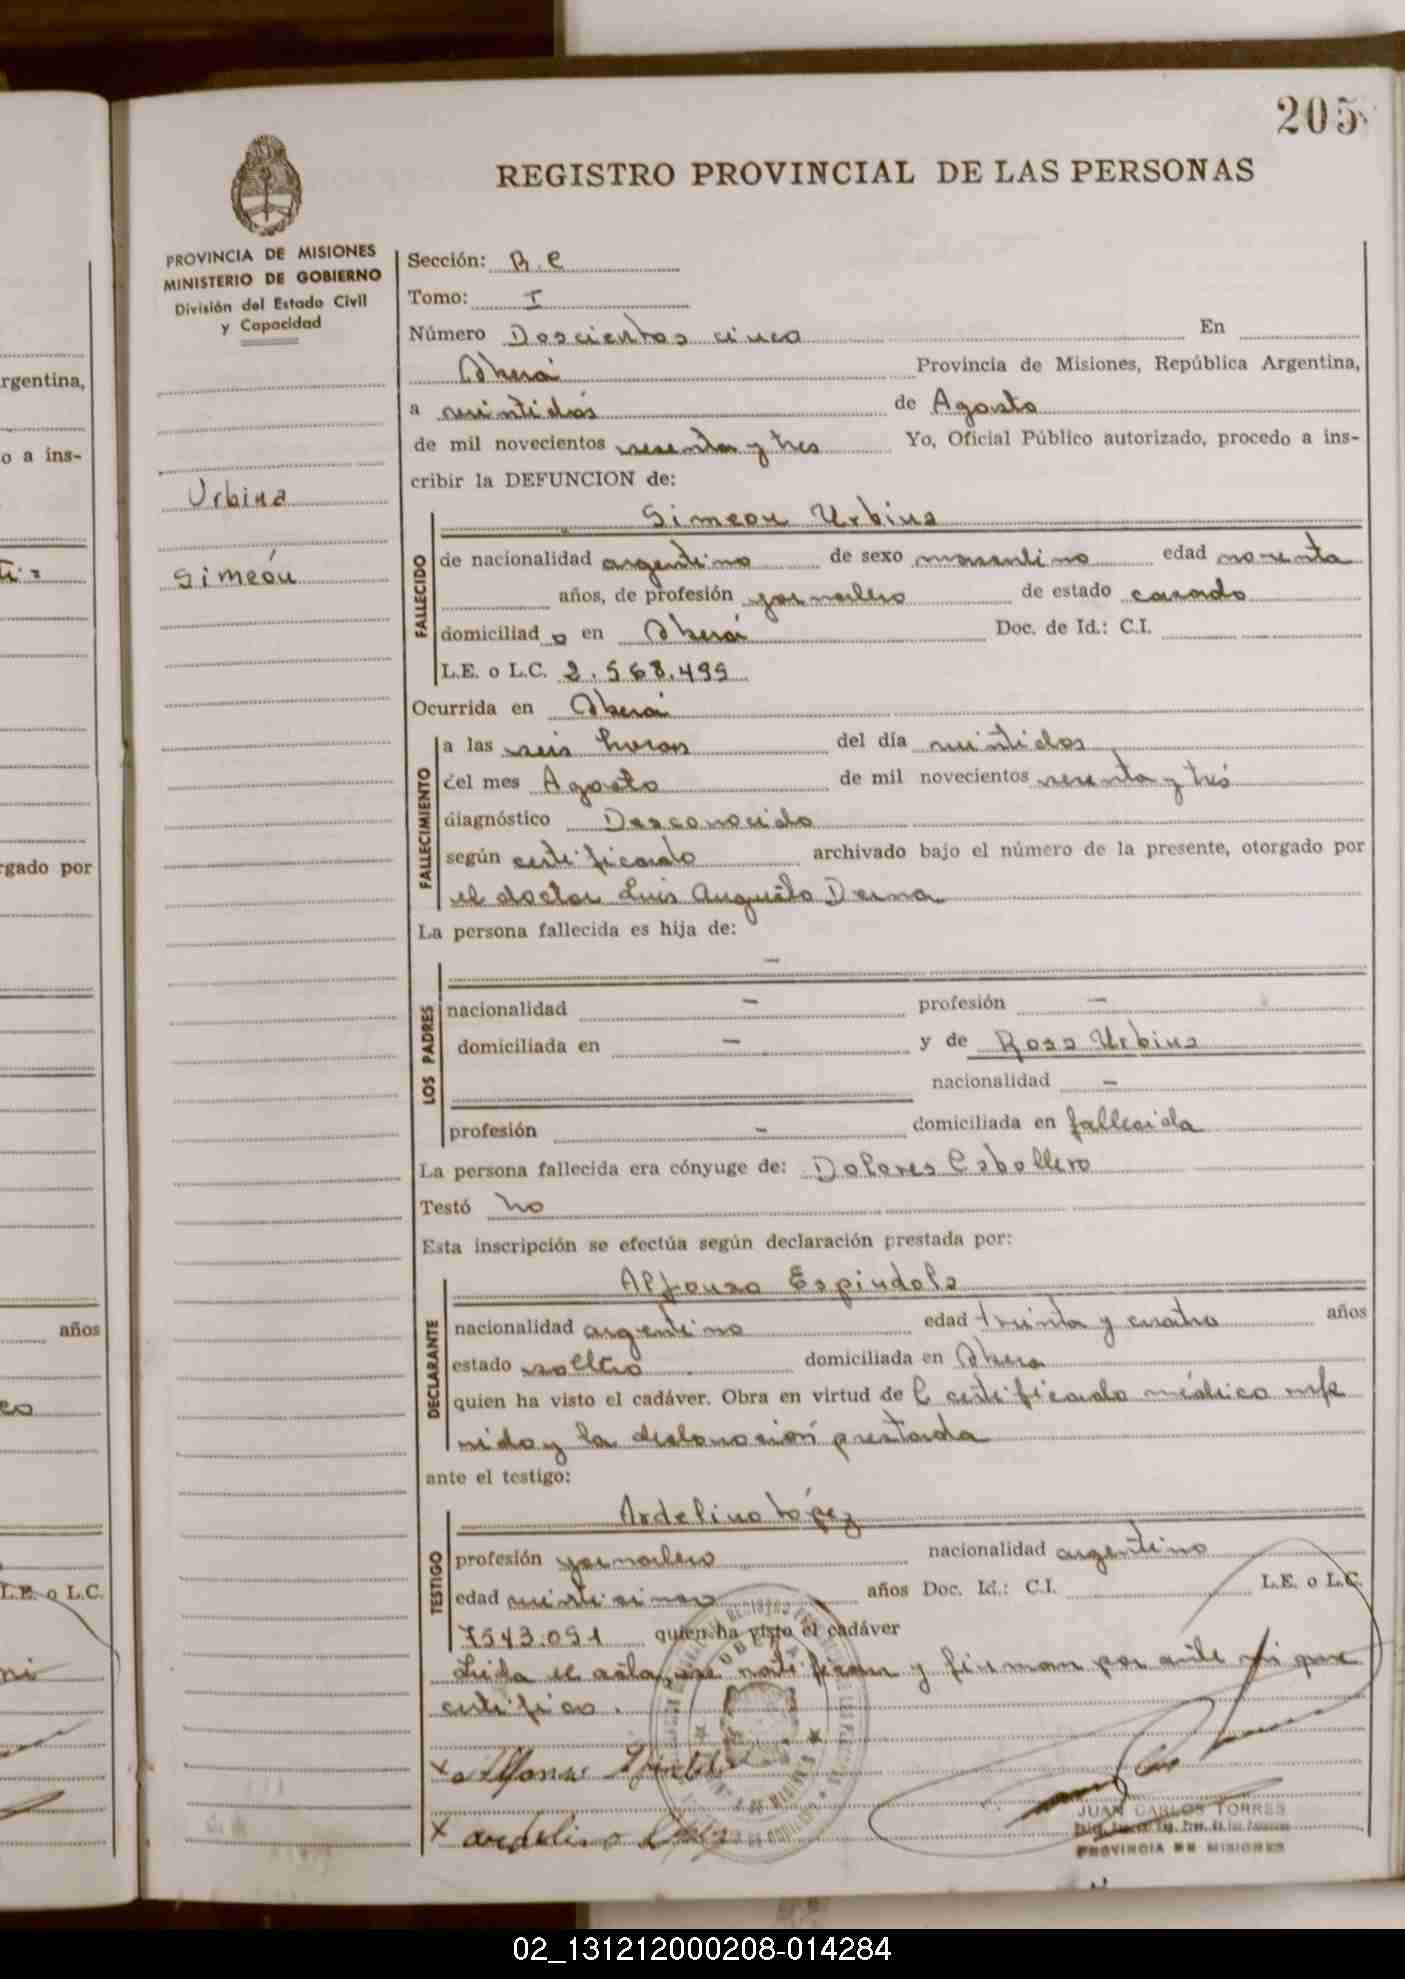 205
REGISTRO PROVINCIAL DE LAS PERSONAS
PROVINCIA DE MISIONES
MINISTERIO DE GOBIERNO
División del Estado Civil
y Capacidad
Urbina
Simeón
Sección: R.C
Tomo: I
Número Doscientos cinco En
Oberá Provincia de Misiones, República Argentina,
a veintidós de Agosto
de mil novecientos sesenta y tres Yo, Oficial Público autorizado, procedo a ins-
cribir la DEFUNCION de:
FALLECIDO
Simeon Urbina
de nacionalidad argentino de sexo masculino edad noventa
años, de profesión jornalero de estado casado
domiciliad o en Oberá Doc. de Id.: C.I.
L.E. o L.C. 2.568.499
Ocurrida en Oberá
FALLECIMIENTO
a las seis horas del día veintidos
del mes Agosto de mil novecientos sesenta y tres
diagnóstico Desconocido
según certificado archivado bajo el número de la presente, otorgado por
el doctor Luis Augusto Derna
La persona fallecida es hija de:
LOS PADRES
-
nacionalidad - profesión -
domiciliada en - y de Rosa Urbina
nacionalidad -
profesión - domiciliada en fallecida
La persona fallecida era cónyuge de: Dolores Caballero
Testó no
Esta inscripción se efectúa según declaración prestada por:
DECLARANTE
Alfonso Espindola
nacionalidad argentino edad treinta y cuatro años
estado soltero domiciliada en Obera
quien ha visto el cadáver. Obra en virtud de l certificado médico refe
rido y la declaración prestada
ante el testigo:
TESTIGO
Ardelino López
profesión jornalero nacionalidad argentino
edad veinticinco años Doc. Id.: C.I. L.E. o L.C.
7543.091 quien ha visto el cadáver
Leida el acta, se ratifican y firman por ante mi que
certifico.
x Alfonso
x ardelino López
JUAN CARLOS TORRES
PROVINCIA DE MISIONES
rgentina,
o a ins-
rgado por
años
L.E. o L.C.
02_131212000208-014284